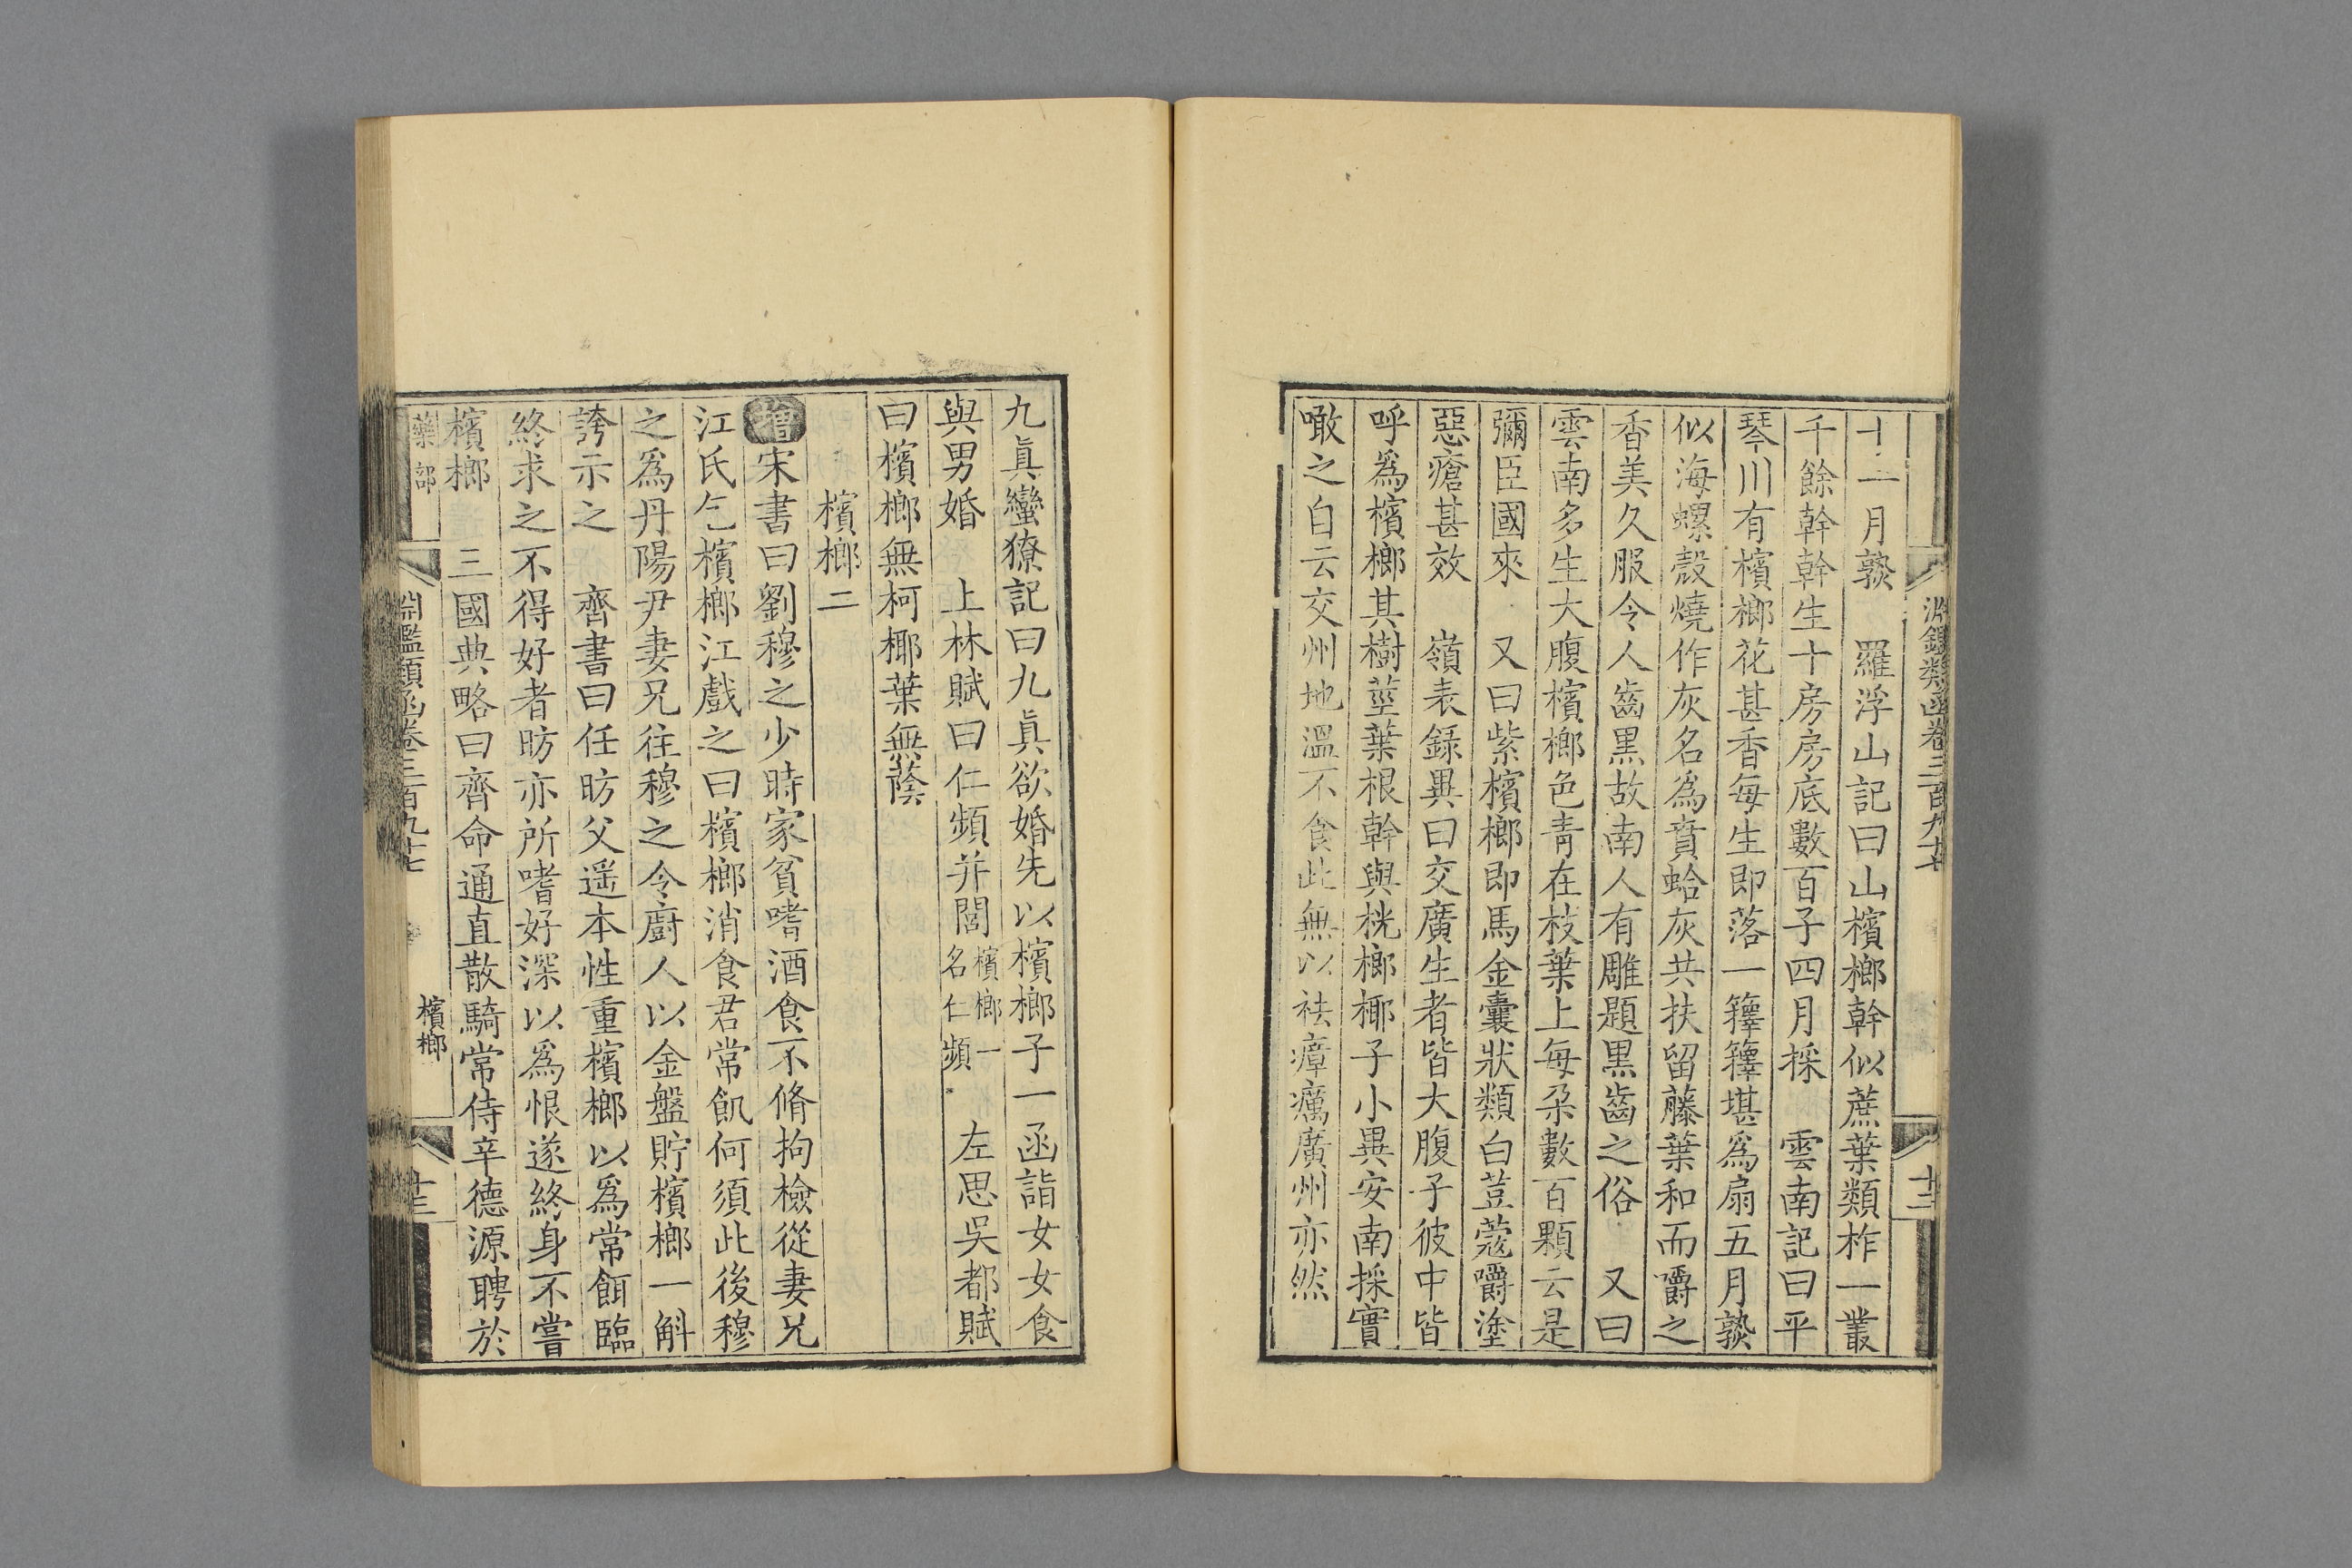 十二月熟　羅浮山記曰山檳榔幹似蔗葉類柞一叢
千餘幹幹生十房房底數百子四月採　雲南記曰平
琴川有檳榔花甚香每生即落一籜籜堪爲扇五月熟
似海螺殼燒作灰名爲賁蛤灰共扶留藤葉和而嚼之
香美久服令人齒黑故南人有雕題黑齒之俗　又曰
雲南多生大腹檳榔色青在枝葉上每朶數百顆云是
彌臣國來　又曰紫檳榔即馬金囊狀類白荳蔻嚼塗
惡瘡甚效　嶺表錄異曰交廣生者皆大腹子彼中皆
呼爲檳榔其樹莖葉根幹與桄榔椰子小異安南採實
噉之自云交州地溫不食此無以袪瘴癘廣州亦然
淵鑑類函卷三百九十七
十二
九眞蠻獠記曰九眞欲婚先以檳榔子一函詣女女食
與男婚　上林賦曰仁頻并閭檳榔一名仁頻　左思吳都賦
曰檳榔無柯椰葉無蔭
檳榔二
增宋書曰劉穆之少時家貧嗜酒食不脩拘檢從妻兄
江氏乞檳榔江戲之曰檳榔消食君常飢何須此後穆
之爲丹陽尹妻兄往穆之令廚人以金盤貯檳榔一斛
誇示之　齊書曰任昉父遥本性重檳榔以爲常餌臨
終求之不得好者昉亦所嗜好深以爲恨遂終身不嘗
檳榔　三國典略曰齊命通直散騎常侍辛德源聘於
藥部
淵鑑類函卷三百九十七
檳榔
十三